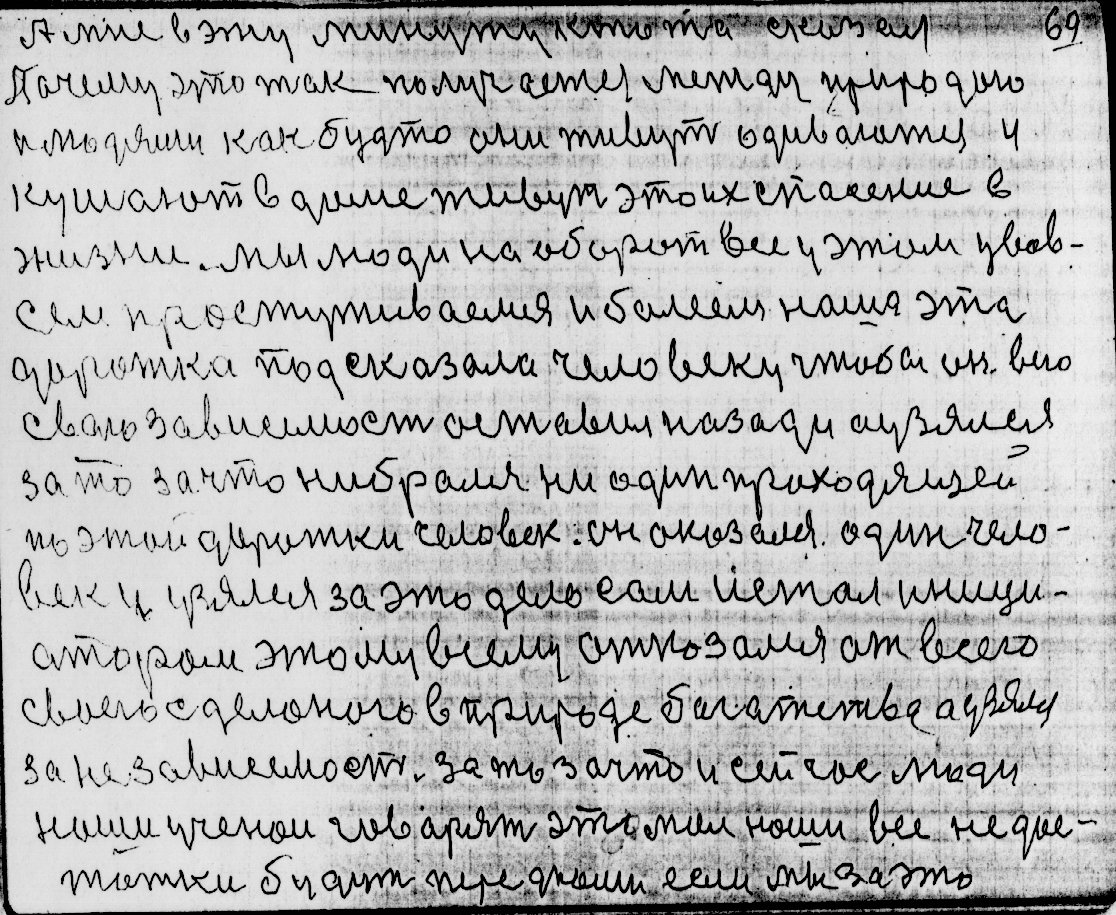 А мне в эту минуту кто то та сказал 69
Почему это так получается между природою
и людями как будто они живут одеваются и
кушают в доме живут это их спасение в
жизни. мы люди на оборот все у этом увов-
сем простуживаемся и болеем наша эта
дорожка подсказала человеку чтобы он. его
сваю зависемост оставил назади а узялся
за то за что нибрался ни один праходящей
по этой дорожки человек: он оказался один чело-
век и узялся за это дело сам и стал иници-
атором этому всему отказался от всего
своего сделоного в природе богатства а узялся
за независемост. за то за что и сейчас люди
наши ученои говарят это мол наши все недос-
татки будут перед нами если мы за это